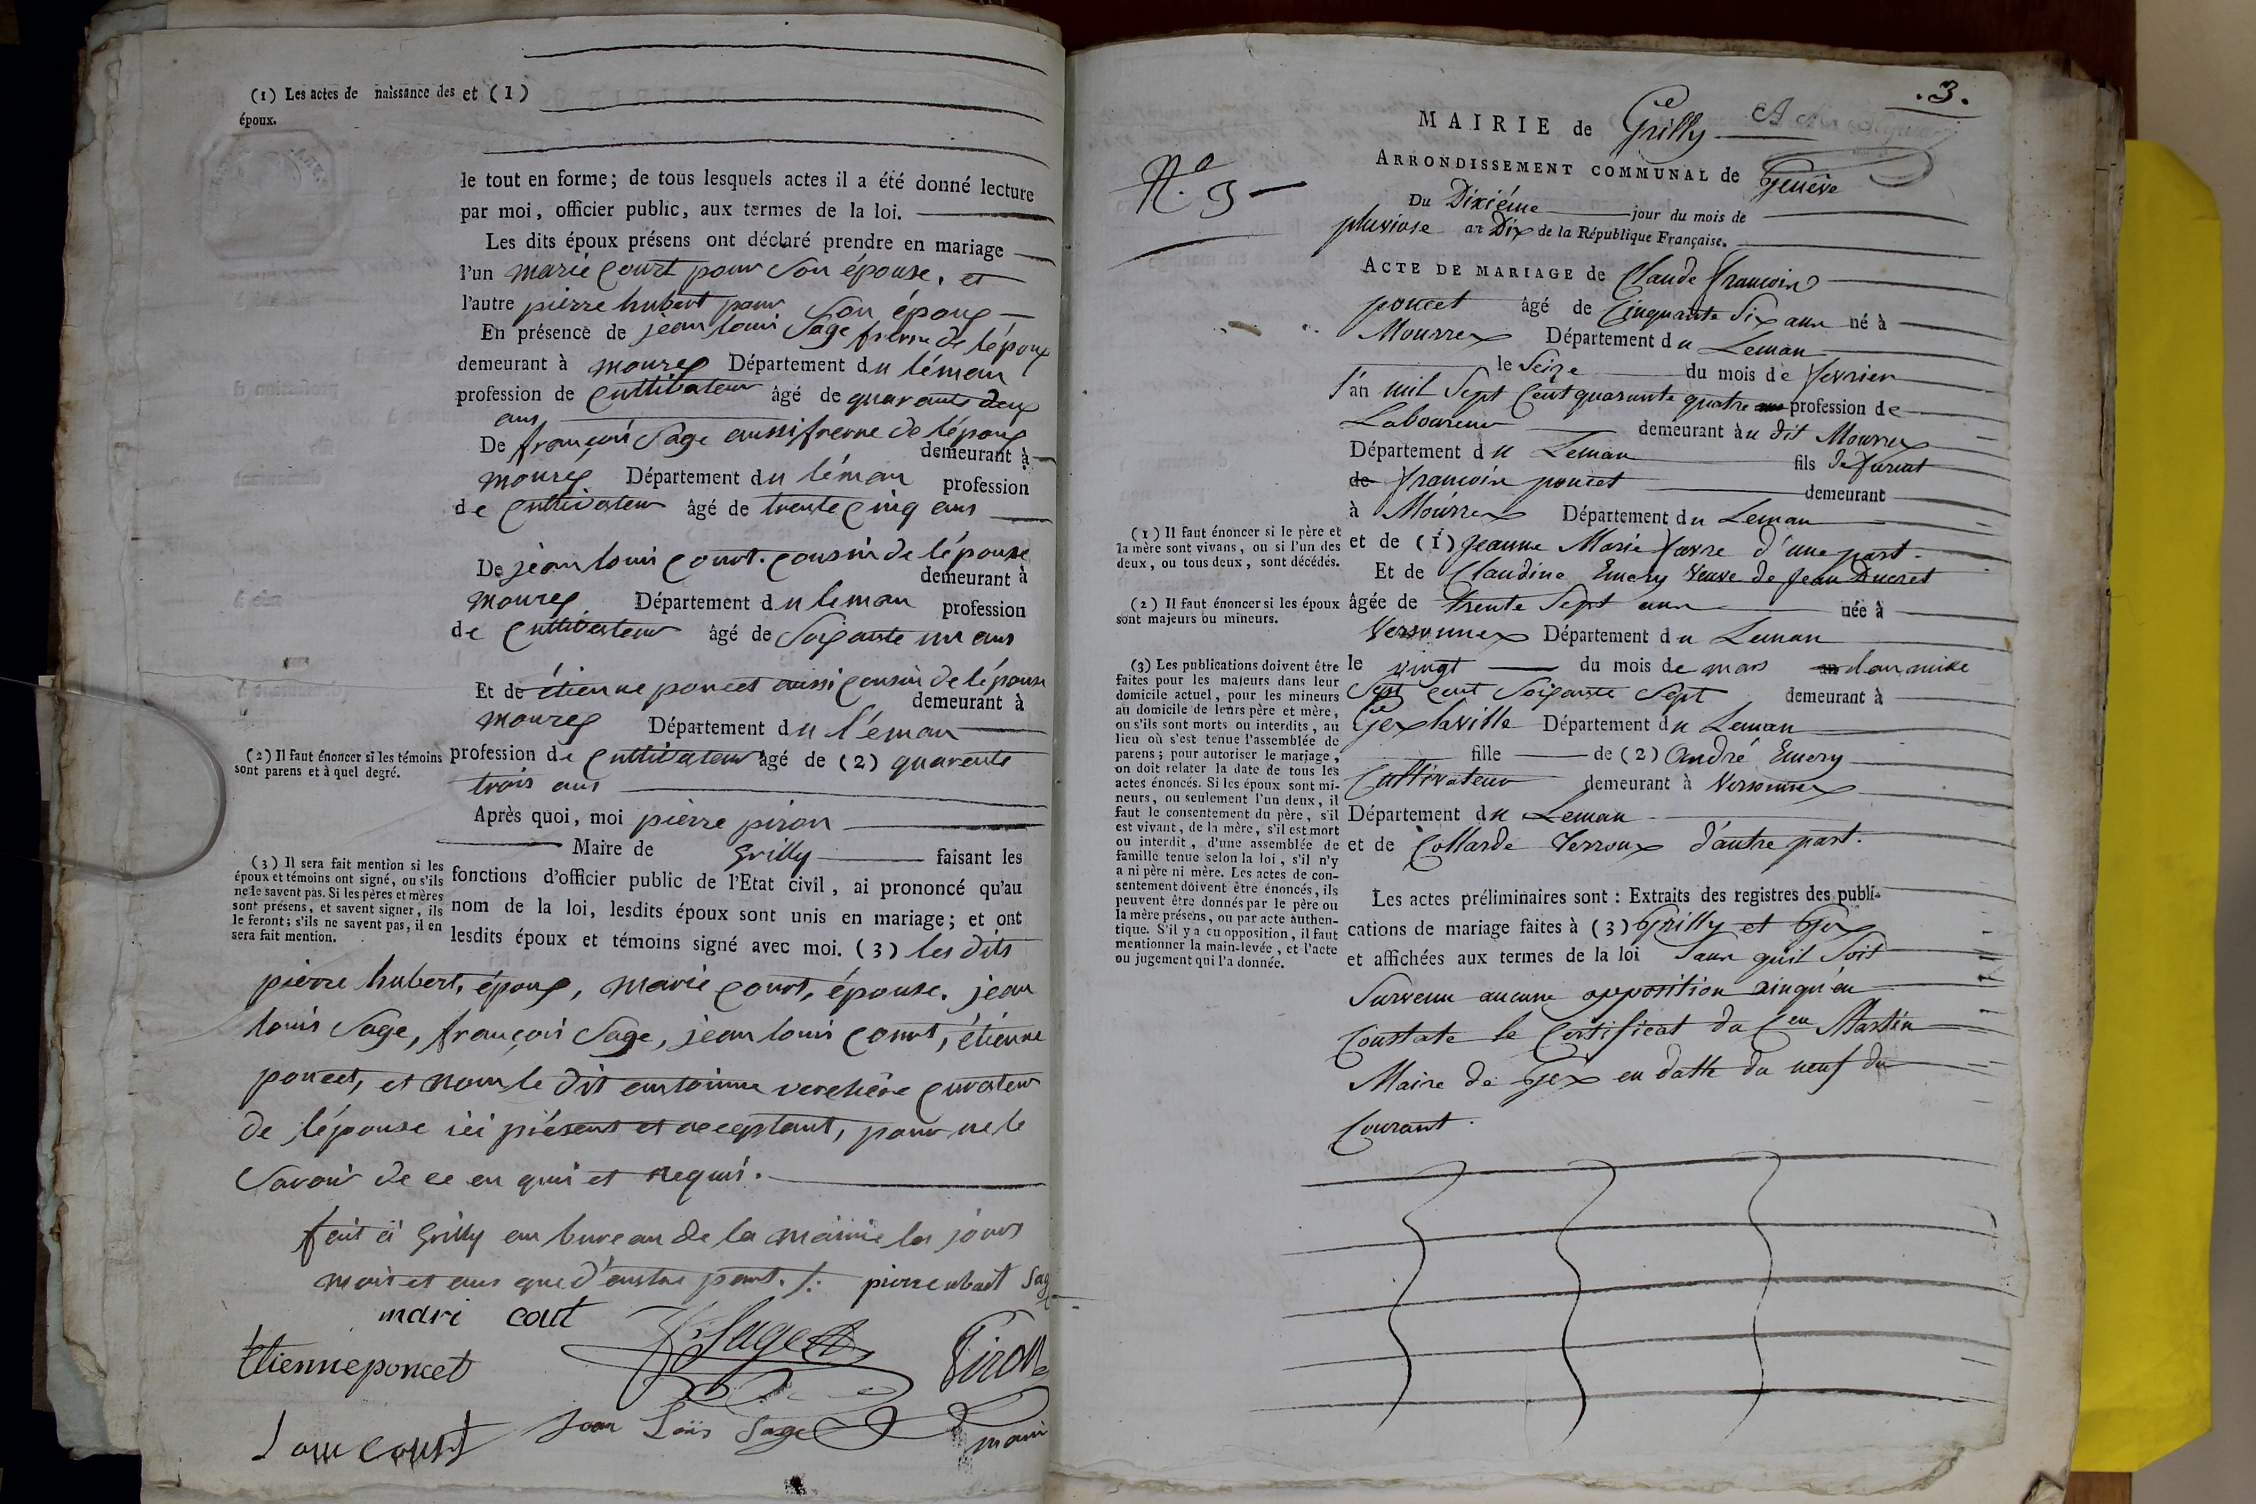 (1) Les actes de naissance des
époux.
et (1)
le tout en forme; de tous lesquels actes il a été donné lecture
par moi, officier public, aux termes de la loi.
Les dits époux présens ont déclaré prendre en mariage
l'un marie Court pour son épouse, et
l'autre pierre hubert pour son époux
En présence de jean louis Sage frerre de l'époux
demeurant à mourex Département du léman
profession de Cultivateur âgé de quarante deux
ans
De françois Sage aussi frerre de l'époux
demeurant à
mourex Département du léman profession
de Cultivateur âgé de trente Cinq ans
De jean louis Court cousin de l'épouse
demeurant à
mourex Département du leman profession
de Cultivateur âgé de Soixante un ans
Et de étienne poncet aussi Cousin de l'épouse
demeurant à
mourex Département du l'éman
(2) Il faut énoncer si les témoins
sont parens et à quel degré.
profession de Cultivateur âgé de (2) quarente
trois ans
Après quoi, moi pierre piron
Maire de Grilly faisant les
(3) Il sera fait mention si les
époux et témoins ont signé, ou s'ils
ne le savent pas. Si les pères et mères
sont présens, et savent signer, ils
le feront; s'ils ne savent pas, il en
sera fait mention.
fonctions d'officier public de l'Etat civil, ai prononcé qu'au
nom de la loi, lesdits époux sont unis en mariage; et ont
lesdits époux et témoins signé avec moi. (3) les dits
pierre hubert, époux, marie Court, épouse. jean
louis Sage, françois Sage, jean louis Court, étienne
poncet, et non le dit antoinne verchère Curateur
de l'épouse ici présent et acceptant, pour ne le
Savoir de ce enquis et requis.
fait à Grilly au bureau de la mairie les jours
mois et ans que d'autre part. /. pierre ubart Sage
mari cout
Etienne poncet
f. Sage
Piron
Jean Loüis Sage
maire
.3.
MAIRIE de Grilly
ARRONDISSEMENT COMMUNAL de Genève
N.o 3
Du Dixiéme jour du mois de
pluviose an Dix de la République Française.
ACTE DE MARIAGE de Claude francois
poncet âgé de Cinquante Six ans né à
Mourrex Département du Leman
le Seize du mois de fevrier
l'an mil Sept Cent quarante quatre profession de
Laboureur demeurant àu dit Mourrex
Département du Leman fils de furent
de francois poncet demeurant
à Mourrex Département du Leman
(1) Il faut énoncer si le père et
la mère sont vivans, ou si l'un des
deux, ou tous deux, sont décédés.
et de (1) Jeanne Marie favre d'une part.
Et de Claudine Emery Veuve de Jean Ducret
(2) Il faut énoncer si les époux
sont majeurs ou mineurs.
âgée de trente Sept ans née à
Versonnex Département du Leman
le vingt du mois de mars an l'an mile
Sept cent Soixante Sept demeurant à
Gex la ville Département du Leman
fille de (2) André Emery
Cultivateur demeurant à Versonnex
Département du Leman
et de Collarde Verroux d'autre part.
(3) Les publications doivent être
faites pour les majeurs dans leur
domicile actuel, pour les mineurs
au domicile de leurs père et mère,
ou s'ils sont morts ou interdits, au
lieu où s'est tenue l'assemblée de
parens; pour autoriser le mariage,
on doit relater la date de tous les
actes énoncés. Si les époux sont mi-
neurs, ou seulement l'un deux, il
faut le consentement du père, s'il
est vivant, de la mère, s'il est mort
ou interdit, d'une assemblée de
famille tenue selon la loi, s'il n'y
a ni père ni mère. Les actes de con-
sentement doivent être énoncés, ils
peuvent être donnés par le père ou
la mère présens, ou par acte authen-
tique. S'il y a eu opposition, il faut
mentionner la main-levée, et l'acte
ou jugement qui l'a donnée.
Les actes préliminaires sont: Extraits des registres des publi-
cations de mariage faites à (3) Grilly et Gex
et affichées aux termes de la loi sans quil Soit
Survenu aucune opposition ainqu'en
Constate le Certificat du Cen Martin
Maire de Gex en datte du neuf du
Courant.